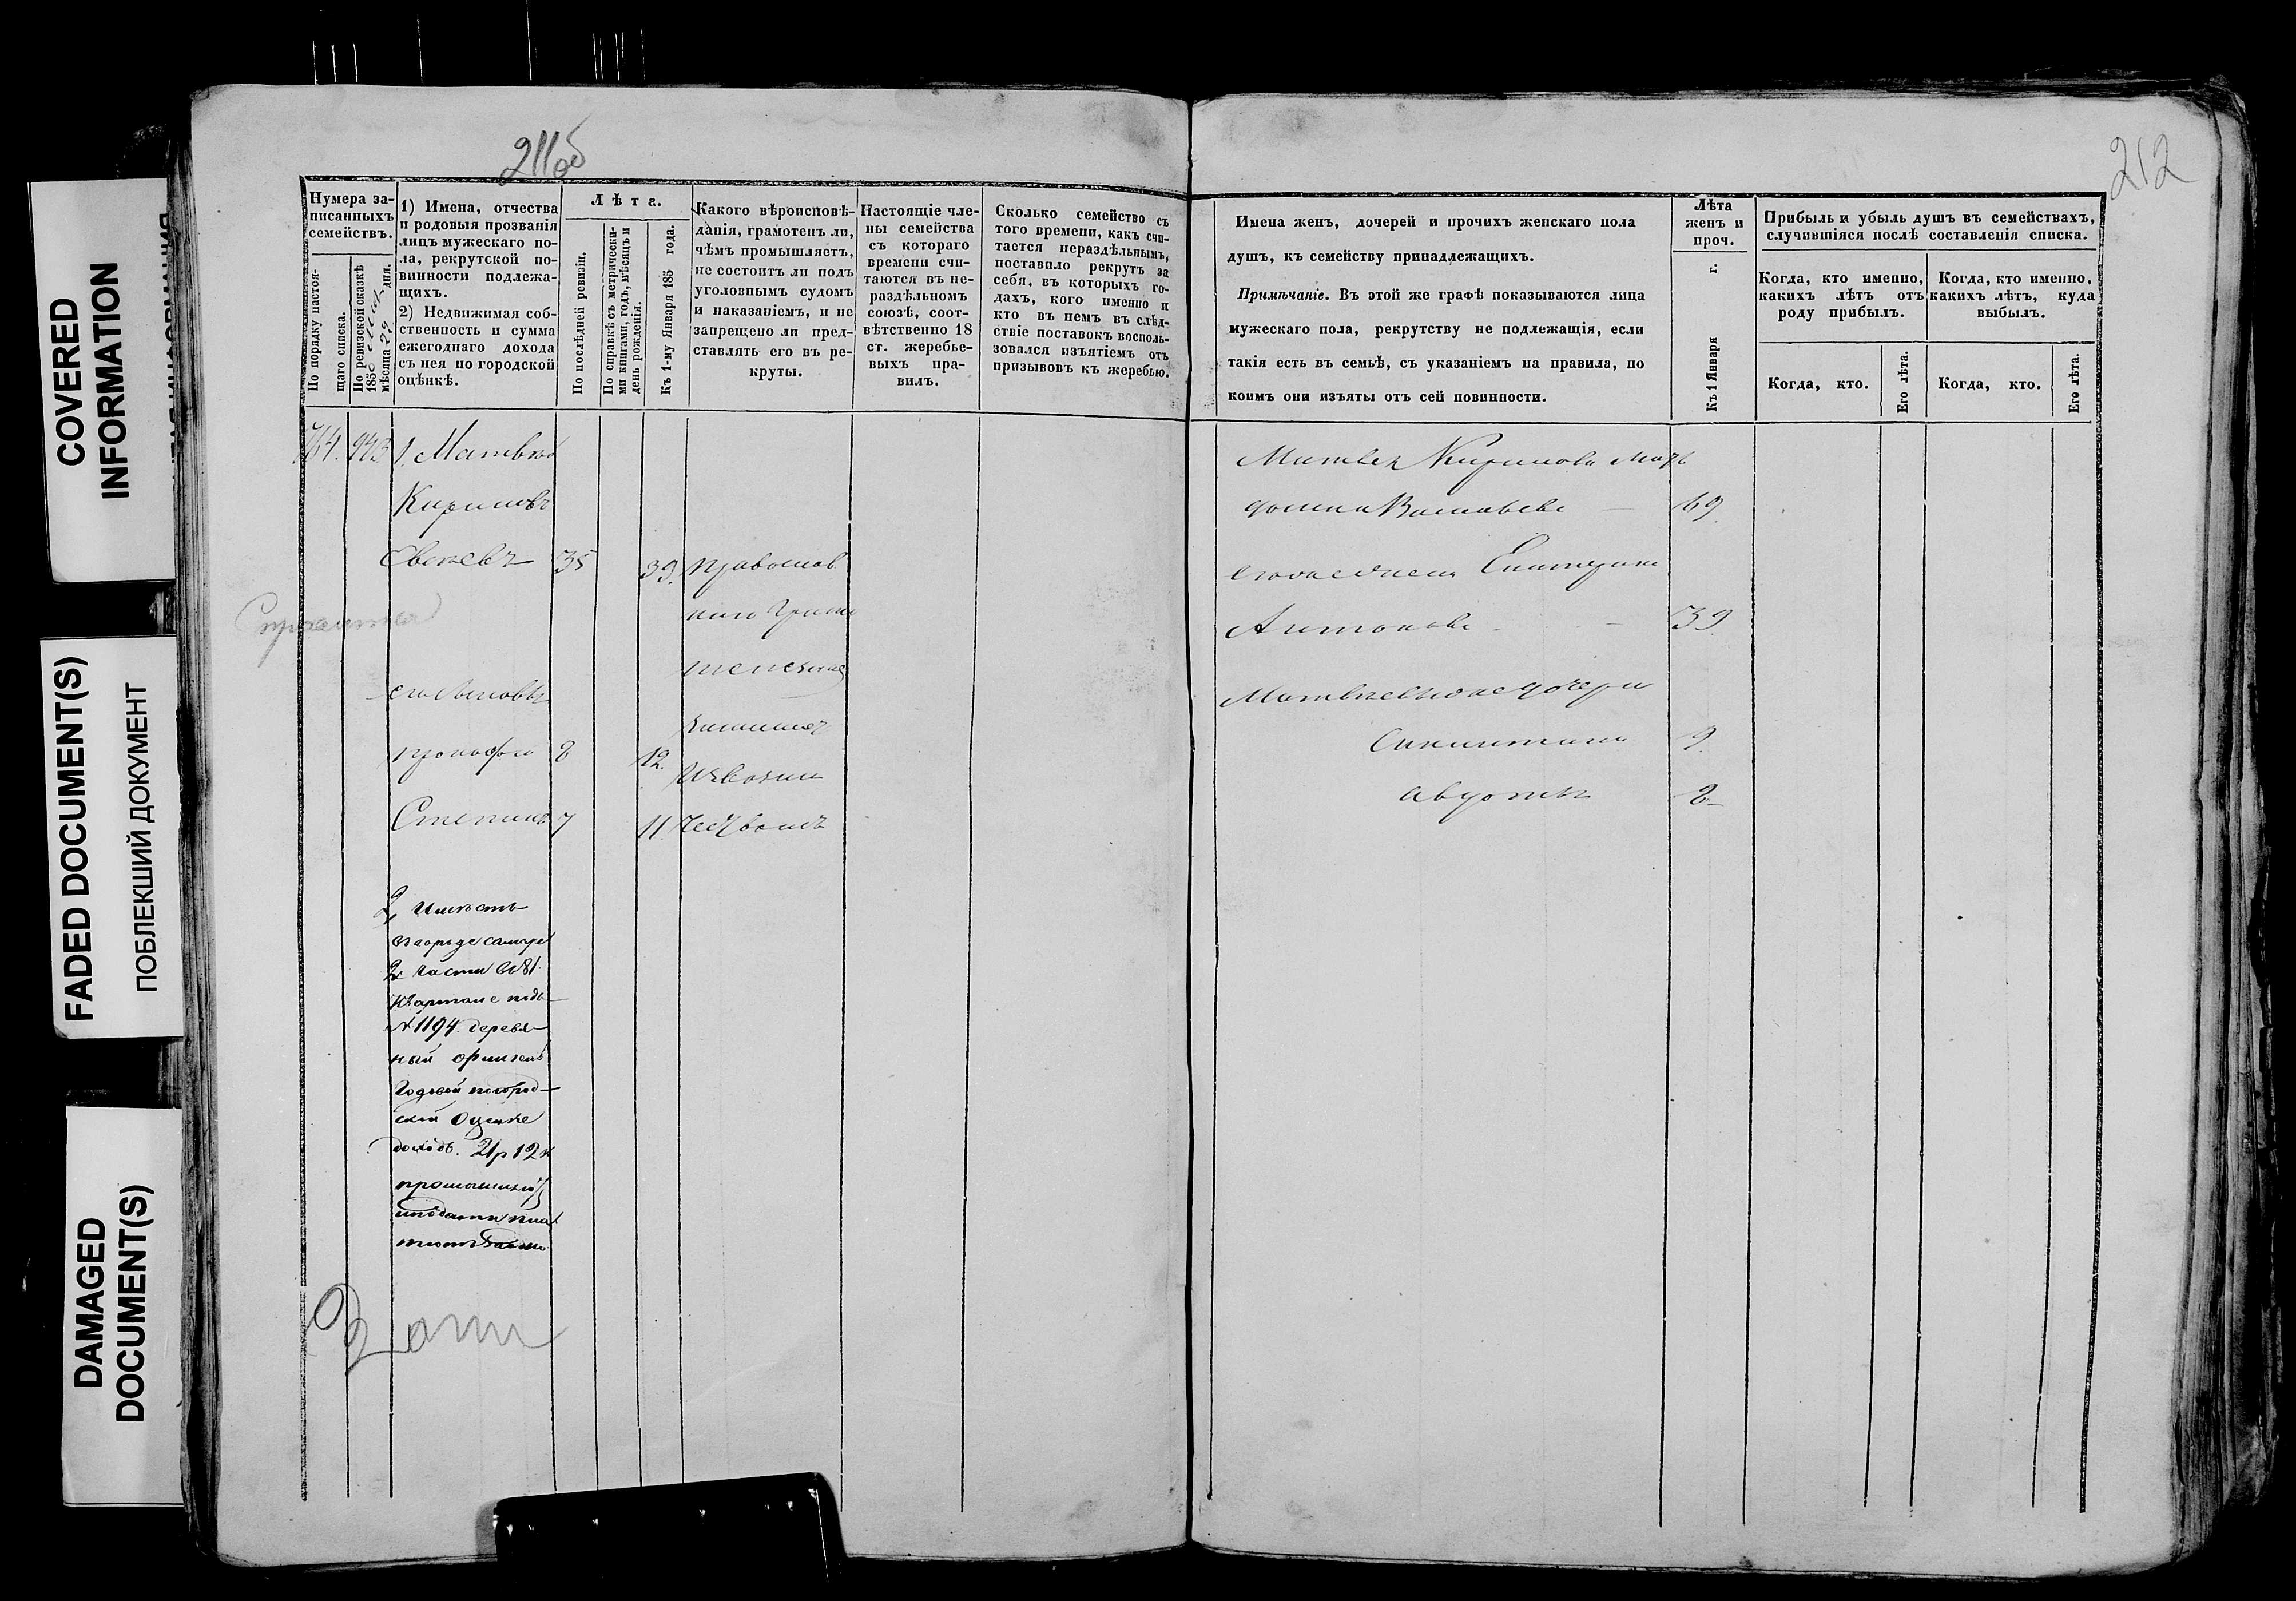 COVERED
INFORMATION
FADED DOCUMENT(S)
ПОБЛЕКШИЙ ДОКУМЕНТ
DAMAGED
DOCUMENT(S)
211об
Нумера за-
писанныхъ
семействъ.
По порядку настоя-
щаго списка.
По ревизской сказкѣ
185
мѣсяца 22 дня.
1) Имена, отчества
и родовыя прозванія
лицъ мужескаго по-
ла, рекрутской по-
винности подлежа-
щихъ.
2) Недвижимая соб-
ственность и сумма
ежегоднаго дохода
съ нея по городской
оцѣнкѣ.
Лѣта.
По послѣдней ревизіи.
По справкѣ съ метрически-
ми книгами, годъ, мѣсяцъ и
день рожденія.
Къ 1-му Января 185 года.
Какого вѣроисповѣ-
данія, грамотенъ ли,
чѣмъ промышляетъ,
не состоитъ ли подъ
уголовнымъ судомъ
и наказаніемъ, и не
запрещено ли пред-
ставлять его въ ре-
круты.
Настоящіе чле-
ны семейства
съ котораго
времени счи-
таются въ не-
раздѣльномъ
союзѣ, соот-
вѣтственно 18
ст. жеребье-
выхъ пра-
вилъ.
Сколько семейство съ
того времени, какъ счи-
тается нераздѣльнымъ,
поставило рекрутъ за
себя, въ которыхъ го-
дахъ, кого именно и
кто въ немъ въ слѣд-
ствіе поставокъ восполь-
зовался изъятіемъ отъ
призывовъ къ жеребью.
764. 943 1. Матвѣй
Кириловъ
35 39. Православ
его сыновья
Прокофій 8 12.
Степанъ 7 11.
2, Имѣетъ
въ городе Самаре
2й части въ 81.
Квартале подъ
№ 1194. деревя-
ный флигель
Годовой погород-
ской Оценке
доходъ. 21р 12к
212
Имена женъ, дочерей и прочихъ женскаго пола
душъ, къ семейству принадлежащихъ.
Примѣчаніе. Въ этой же графѣ показываются лица
мужескаго пола, рекрутству не подлежащія, если
такія есть въ семьѣ, съ указаніемъ на правила, по
коимъ они изъяты отъ сей повинности.
Лѣта
женъ и
проч.
Къ 1 Января г.
Прибыль и убыль душъ въ семействахъ,
случившіяся послѣ составленія списка.
Когда, кто именно,
какихъ лѣтъ отъ
роду прибылъ.
Когда, кто именно,
какихъ лѣтъ, куда
выбылъ.
Когда, кто.
Его лѣта.
Когда, кто.
Его лѣта.
Матвея Кирилова мать
Васильева 69.
Екатерина
Антонова 39.
дочери
9.